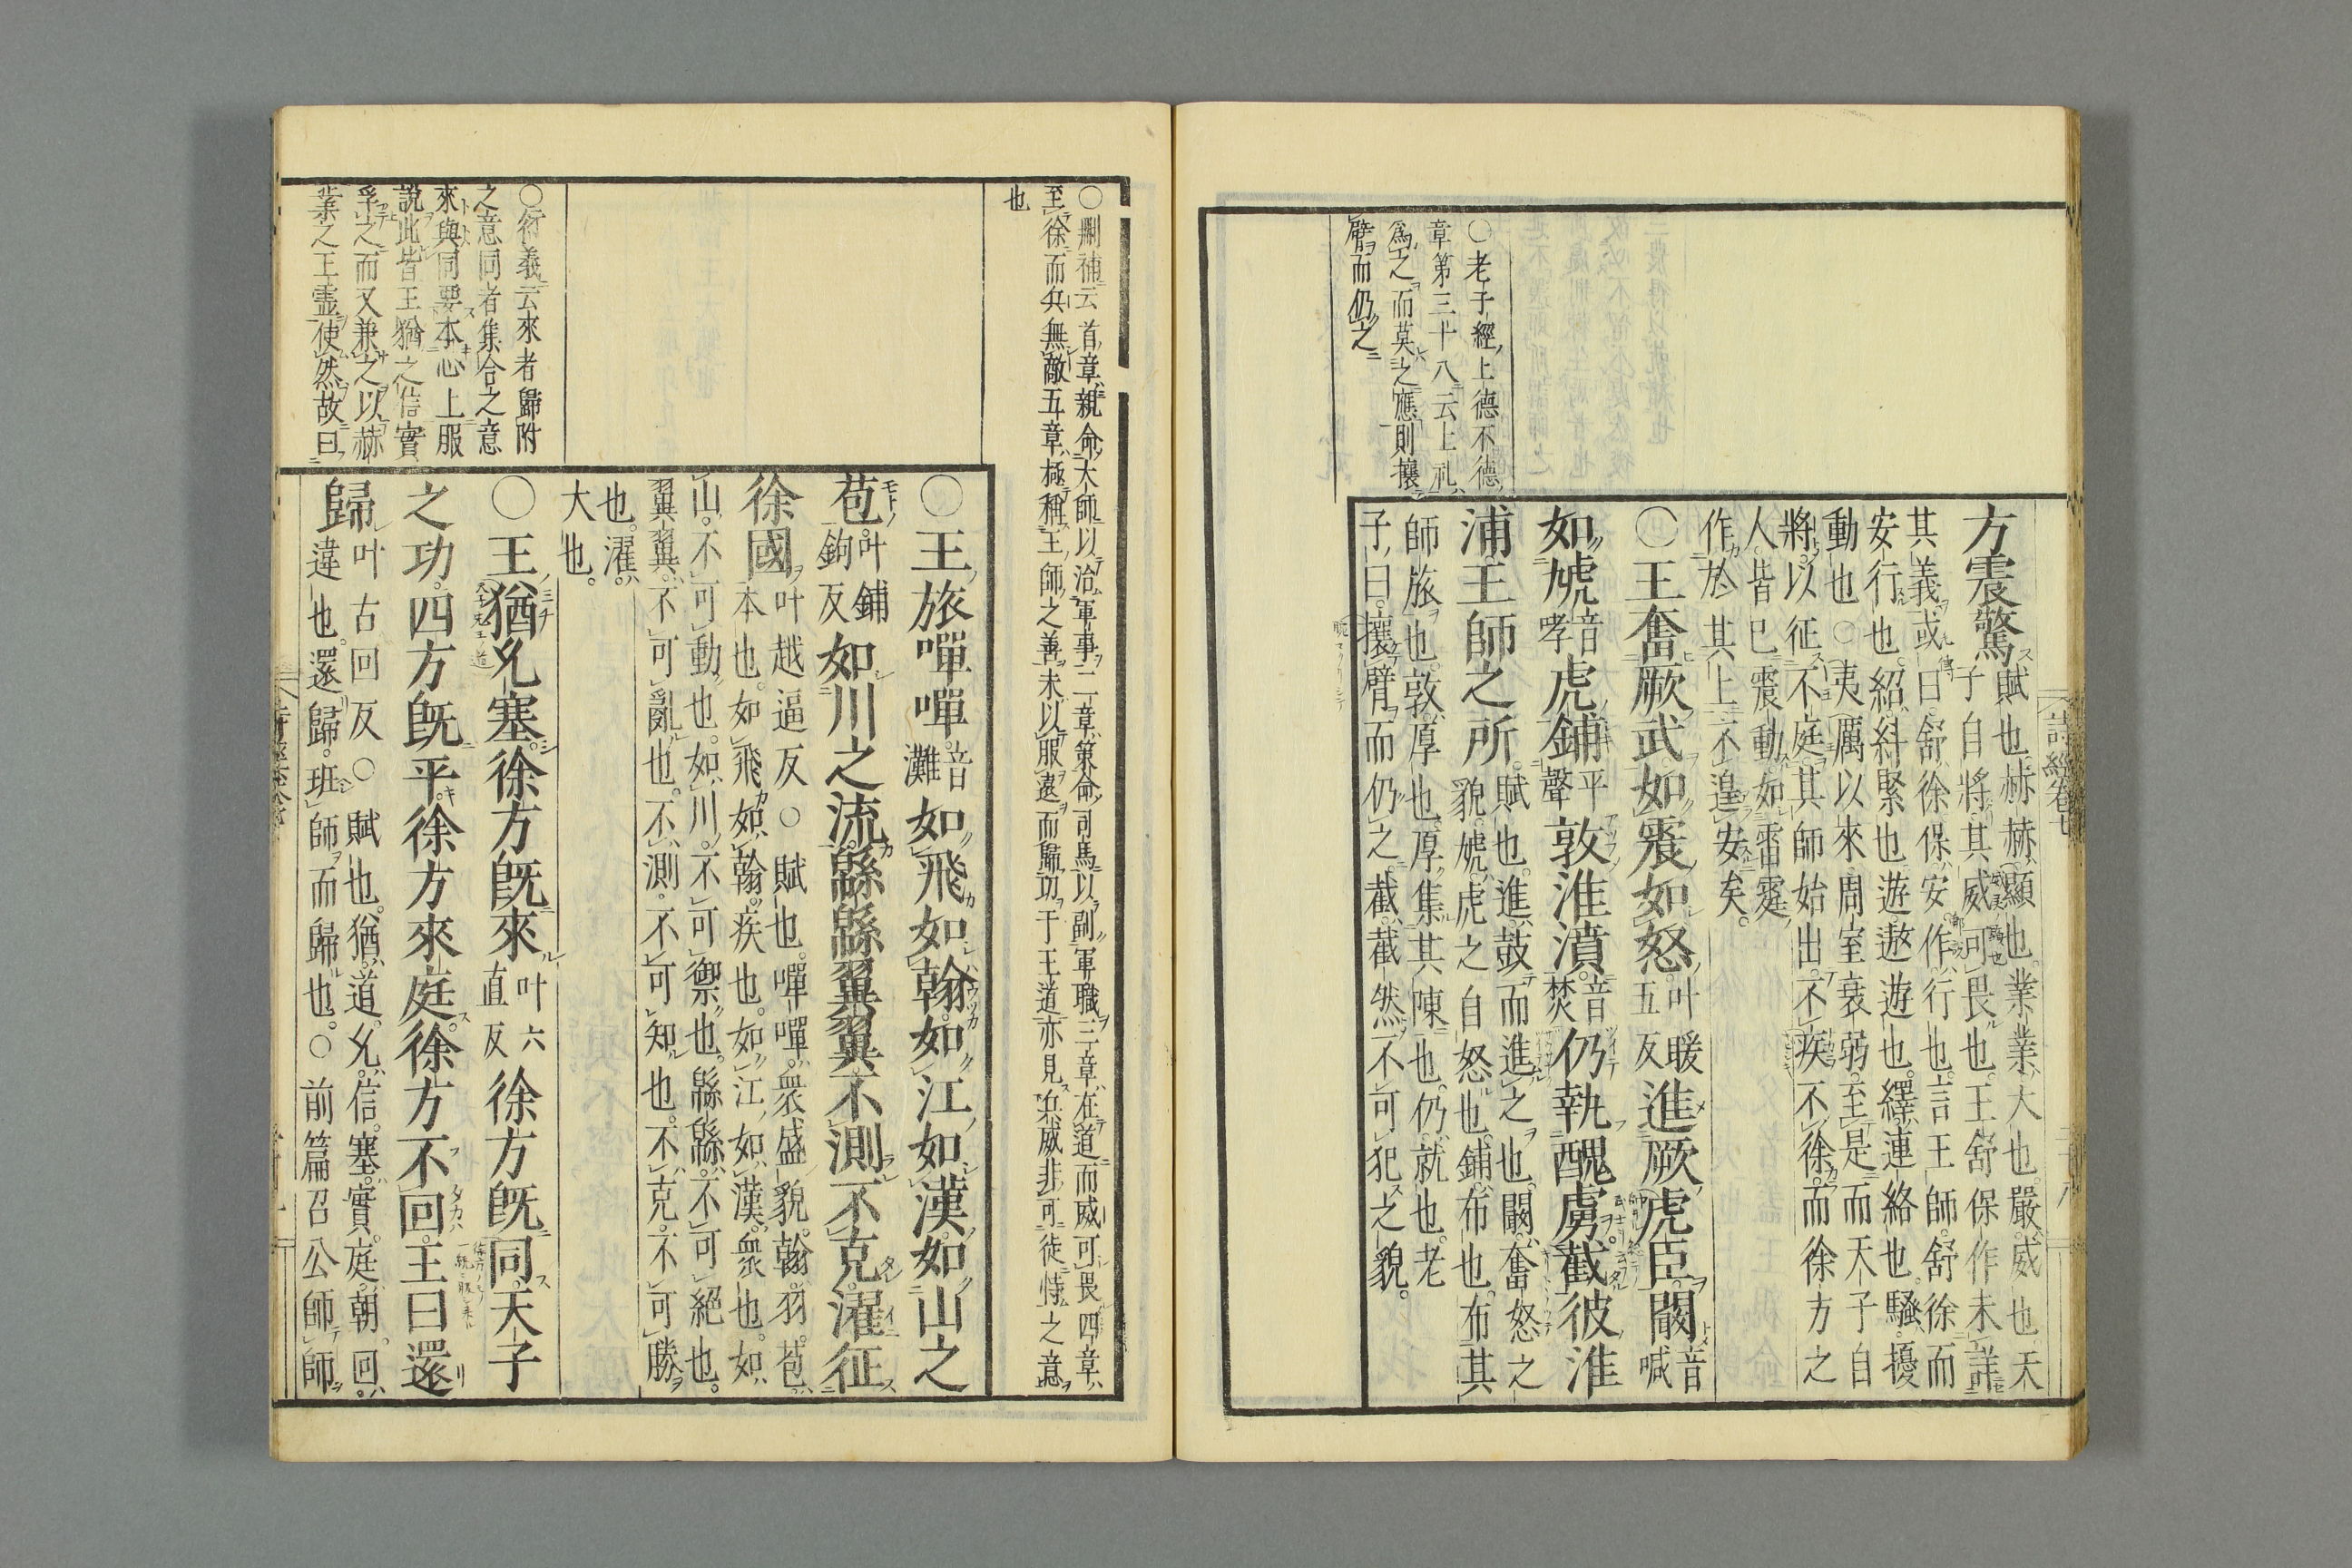 詩經卷七
○老子經上德不德
章第三十八云上礼
爲之而莫之應則攘
臂而仍之
方震驚賦也赫赫顯也業業大也嚴威也天
子自將其威可畏也王舒保作未詳
其義或曰舒徐保安作行也言王師舒徐而
安行也紹糾緊也遊遨遊也繹連絡也騷擾
動也○夷厲以來周室衰弱至是而天子自
將以征不庭其師始出不疾不徐而徐方之
人皆已震動如雷霆
作於其上不遑安矣
○王奮厥武如震如怒叶暖五反進厥虎臣闞音喊
如虓音哮虎鋪平聲敦淮濆音焚仍執醜虜截彼淮
浦王師之所賦也進鼓而進之也闞奮怒之
貌虓虎之自怒也鋪布也布其
師旅也敦厚也厚集其陳也仍就也老
子曰攘臂而仍之截截然不可犯之貌
○刪補云首章親命大師以治軍事二章策命司馬以副軍職三章在道而威可畏四章
至徐而兵無敵五章極稱王師之善末以服遠而歸功于王道亦見兵威非可徒恃之意
也
○王旅嘽嘽音灘如飛如翰如江如漢如山之
苞叶鋪鉤反如川之流緜緜翼翼不測不克濯征
徐國叶越逼反○賦也嘽嘽衆盛貌翰羽苞
本也如飛如翰疾也如江如漢衆也如
山不可動也如川不可禦也緜緜不可絕也
翼翼不可亂也不測不可知也不克不可勝
也濯
大也
○衍義云來者歸附
之意同者集合之意
來與同要本心上服
說此皆王猶之信實
孚之而又兼之以赫
業之王靈使然故曰
○王猶允塞徐方既來叶六直反徐方既同天子
之功四方既平徐方來庭徐方不回王曰還
歸叶古回反○賦也猶道允信塞實庭朝回
違也還歸班師而歸也○前篇召公師師